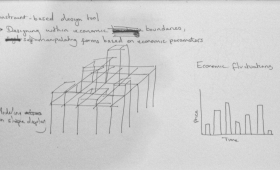 -based design tool
• Designing within economic boundaries,
manipulating forms based on economic parameters
Economic fluctuations
Price
Time